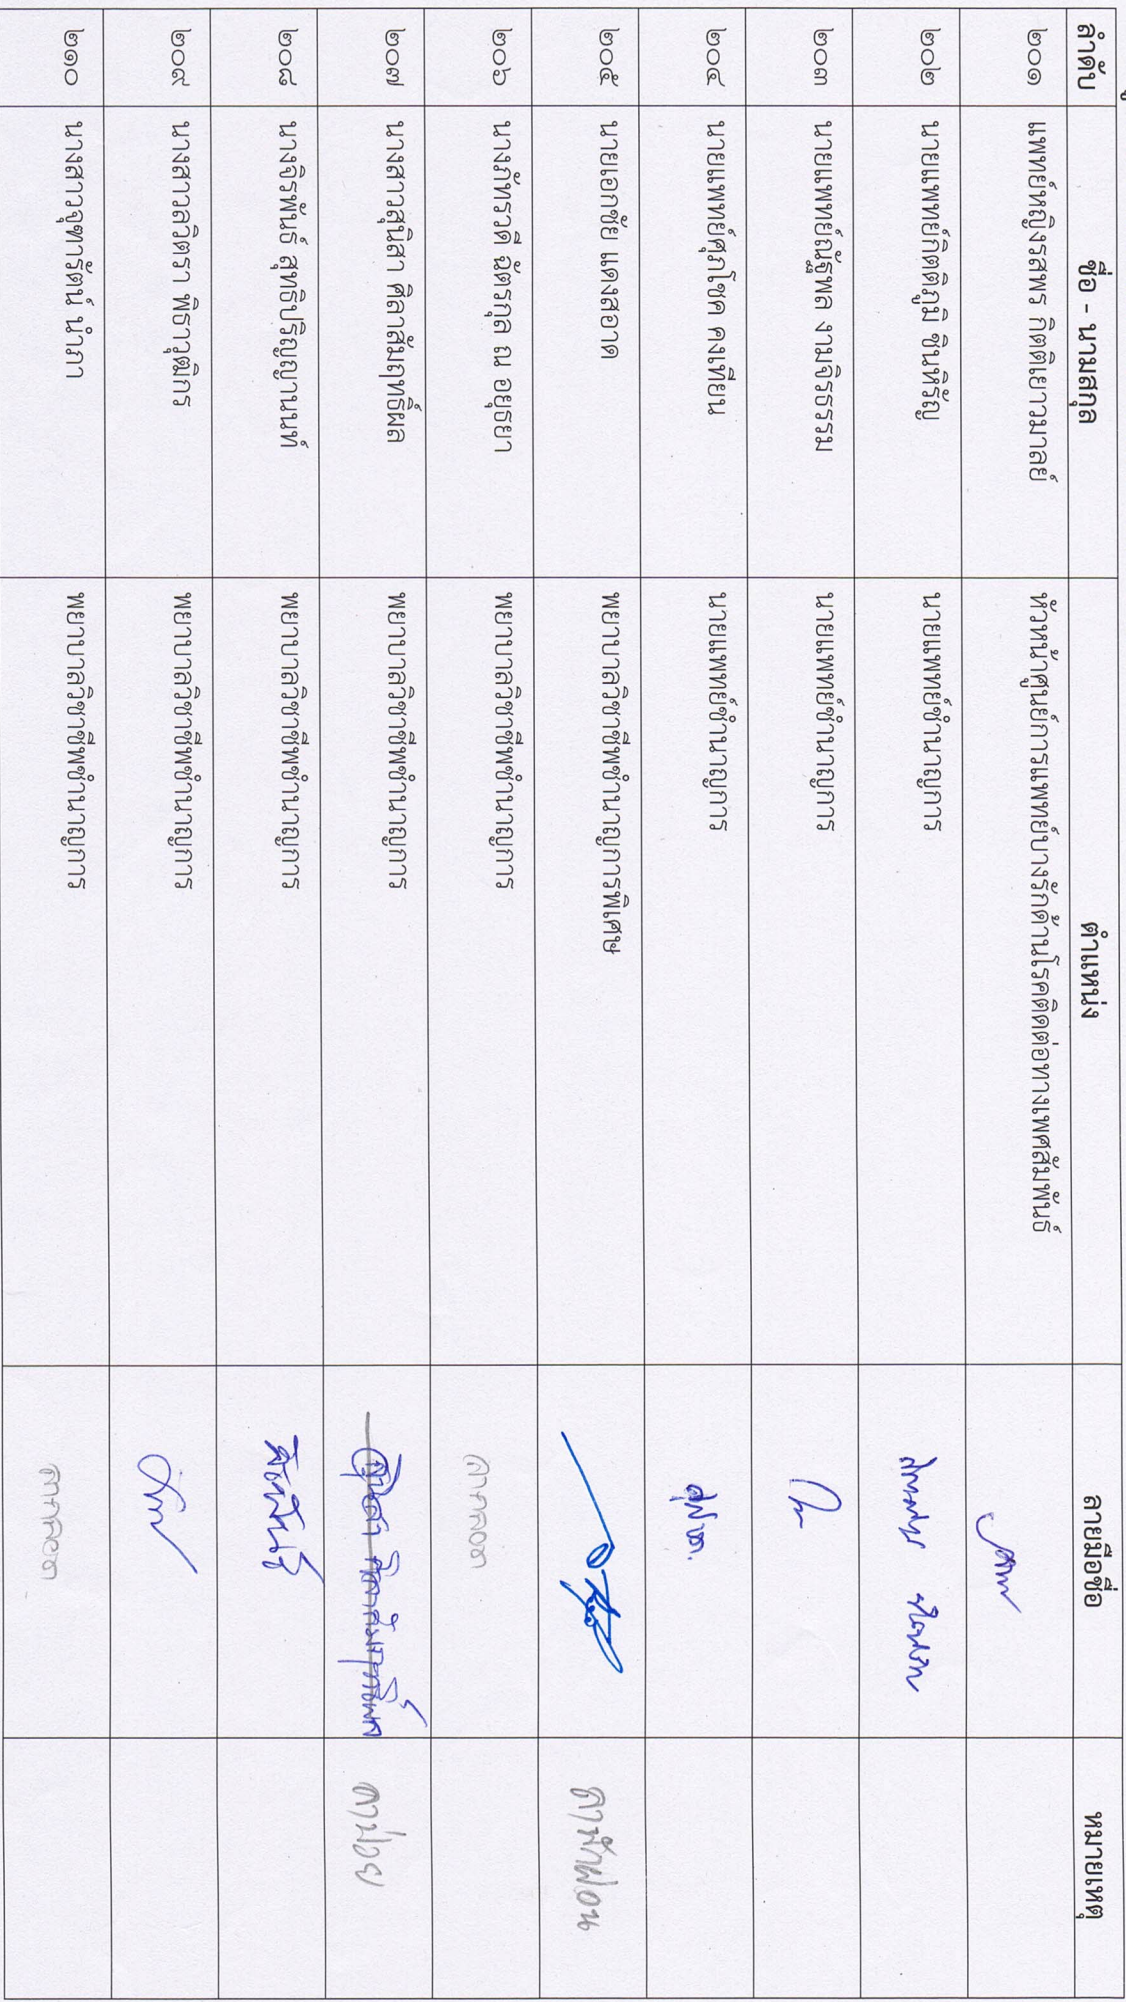 ลำดับ ชื่อ - นามสกุล ตำแหน่ง ลายมือชื่อ หมายเหตุ
๒๐๑ แพทย์หญิงรสพร กิตติเยาวมาลย์ หัวหน้าศูนย์การแพทย์บางรักด้านโรคติดต่อทางเพศสัมพันธ์
๒๐๒ นายแพทย์กิตติภูมิ ชินหิรัญ นายแพทย์ชำนาญการ
๒๐๓ นายแพทย์ณัฐพล งามจิรธรรม นายแพทย์ชำนาญการ
๒๐๔ นายแพทย์ศุภโชค คงเทียน นายแพทย์ชำนาญการ
๒๐๕ นายเอกชัย แดงสอาด พยาบาลวิชาชีพชำนาญการพิเศษ ลาพักผ่อน
๒๐๖ นางภัทราวดี ฉัตรกุล ณ อยุธยา พยาบาลวิชาชีพชำนาญการ ลาคลอด
๒๐๗ นางสาวสุนิสา ศิลาสัมฤทธิ์ผล พยาบาลวิชาชีพชำนาญการ สุนิสา ศิลาสัมฤทธิ์ผล ลาป่วย
๒๐๘ นางจิรพันธ์ สุทธิปริญญานนท์ พยาบาลวิชาชีพชำนาญการ
๒๐๙ นางสาวลวิตรา พิธาวุฒิกร พยาบาลวิชาชีพชำนาญการ
๒๑๐ นางสาวจุฑารัตน์ นำภา พยาบาลวิชาชีพชำนาญการ ลาคลอด